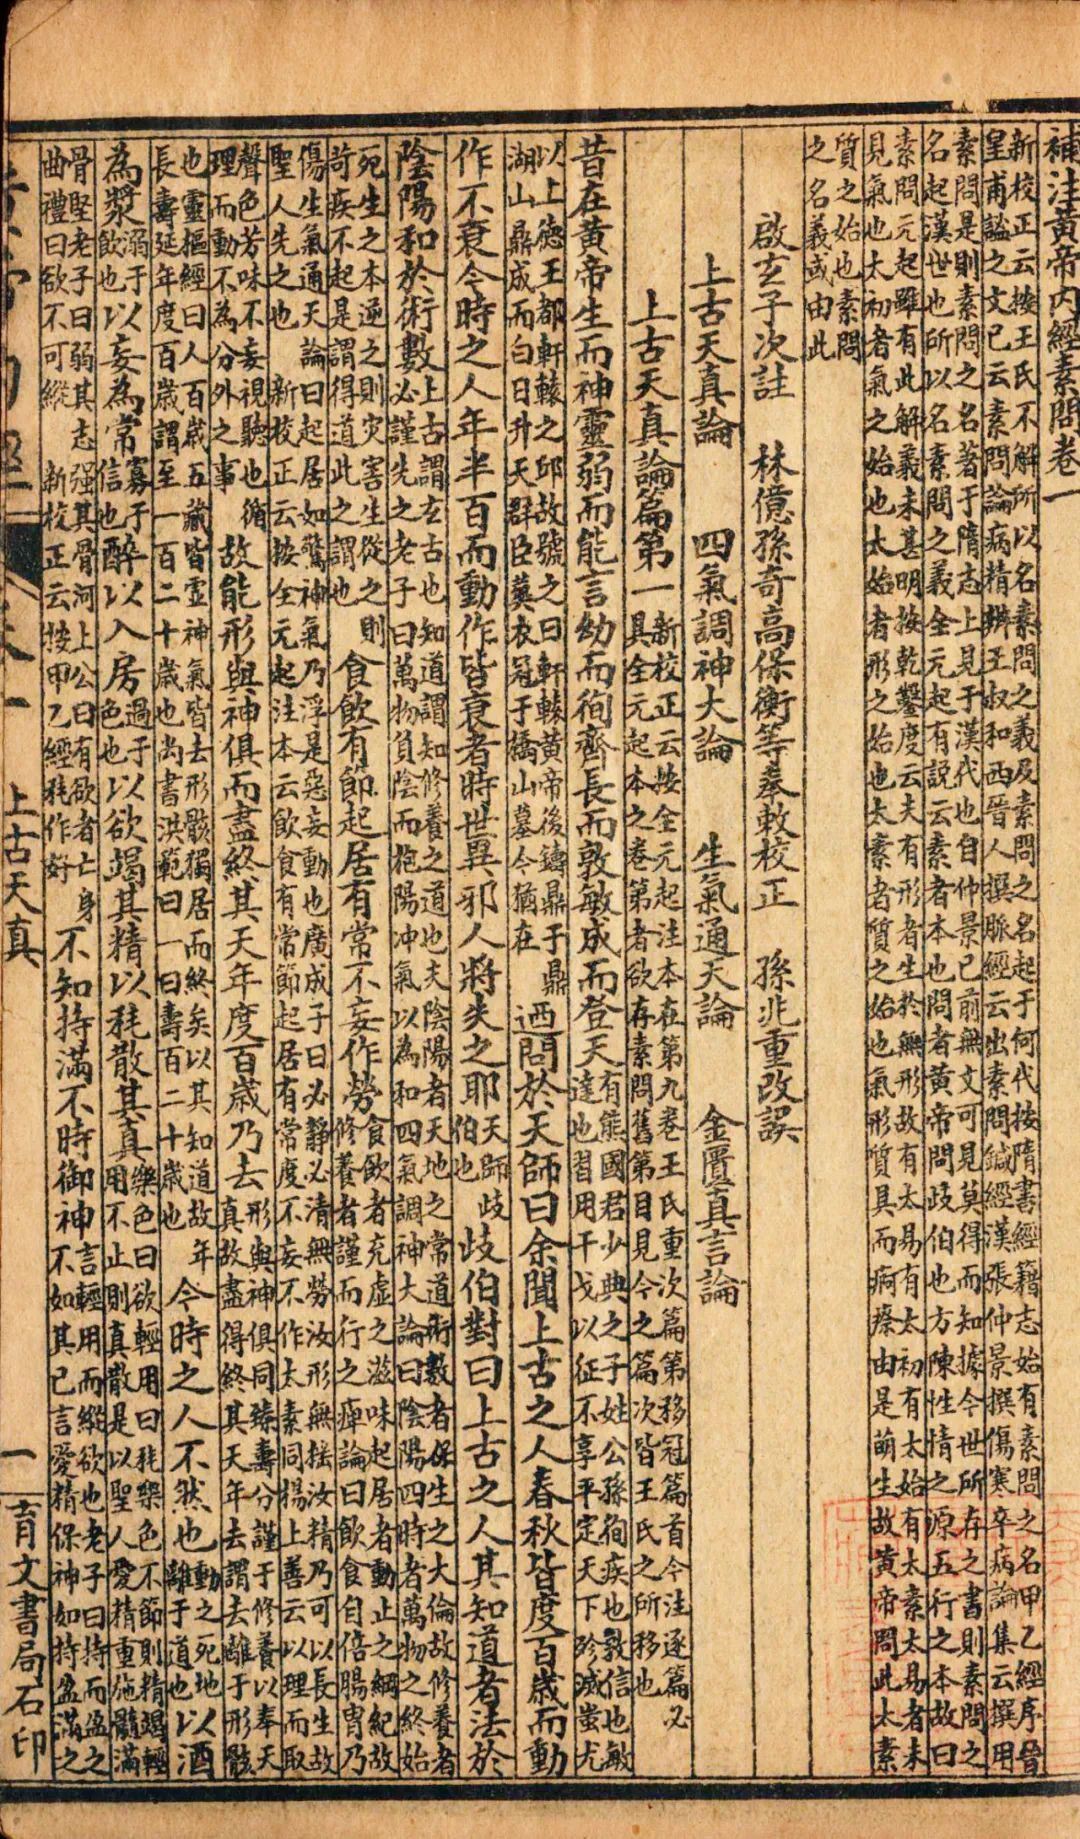 補注黃帝內經素問卷一
新校正云按王氏不解所以名素問之義及素問之名起于何代按隋書經籍志始有素問之名甲乙經序晉
皇甫謐之文已云素問論病精辨王叔和西晉人撰脉經云出素問鍼經漢張仲景撰傷寒卒病論集云撰用
素問是則素問之名著于隋志上見于漢代也自仲景已前無文可見莫得而知據今世所存之書則素問之
名起漢世也所以名素問之義全元起有說云素者本也問者黃帝問歧伯也方陳性情之源五行之本故曰
素問元起雖有此解義未甚明按乾鑿度云夫有形者生於無形故有太易有太初有太始有太素太易者未
見氣也太初者氣之始也太始者形之始也太素者質之始也氣形質具而痾瘵由是萌生故黃帝問此太素
質之始也素問
之名義或由此
啟玄子次註　林億孫奇高保衡等奉敕校正　孫兆重改誤
上古天真論　四氣調神大論　生氣通天論　金匱真言論
上古天真論篇第一新校正云按全元起注本在第九卷王氏重次篇第移冠篇首今注逐篇必具全元起本之卷第者欲存素問舊第目見今之篇次皆王氏之所移也
昔在黃帝生而神靈弱而能言幼而徇齊長而敦敏成而登天有熊國君少典之子姓公孫徇疾也敦信也敏達也習用干戈以征不享平定天下殄滅蚩尤
以上德王都軒轅之邱故號之曰軒轅黃帝後鑄鼎于鼎湖山鼎成而白日升天群臣葬衣冠于橋山墓今猶在迺問於天師曰余聞上古之人春秋皆度百歲而動
作不衰今時之人年半百而動作皆衰者時世異邪人將失之耶天師歧伯也歧伯對曰上古之人其知道者法於
陰陽和於術數上古謂玄古也知道謂知修養之道也夫陰陽者天地之常道術數者保生之大倫故修養者必謹先之老子曰萬物負陰而抱陽冲氣以為和四氣調神大論曰陰陽四時者萬物之終始
死生之本逆之則灾害生從之則苛疾不起是謂得道此之謂也食飲有節起居有常不妄作勞食飲者充虛之滋味起居者動止之綱紀故修養者謹而行之痺論曰飲食自倍腸胃乃
傷生氣通天論曰起居如驚神氣乃浮是惡妄動也廣成子曰必靜必清無勞汝形無摇汝精乃可以長生故
聖人先之也　新校正云按全元起注本云飲食有常節起居有常度不妄不作太素同楊上善云以理而取
聲色芳味不妄視聽也循理而動不為分外之事故能形與神俱而盡終其天年度百歲乃去形與神俱同臻壽分謹于修養以奉天真故盡得終其天年去謂去離于形骸
也靈樞經曰人百歲五藏皆虛神氣皆去形骸獨居而終矣以其知道故年長壽延年度百歲謂至一百二十歲也尚書洪範曰一曰壽百二十歲也今時之人不然也動之死地離于道也以酒
為漿溺于飲也以妄為常寡于信也醉以入房過于色也以欲竭其精以耗散其真樂色曰欲輕用曰耗樂色不節則精竭輕用不止則真散是以聖人愛精重施髓滿
骨堅老子曰弱其志强其骨河上公曰有欲者亡身曲禮曰欲不可縱　新校正云按甲乙經耗作好不知持滿不時御神言輕用而縱欲也老子曰持而盈之不如其已言愛精保神如持盈滿之
上古天真
一
育文書局石印